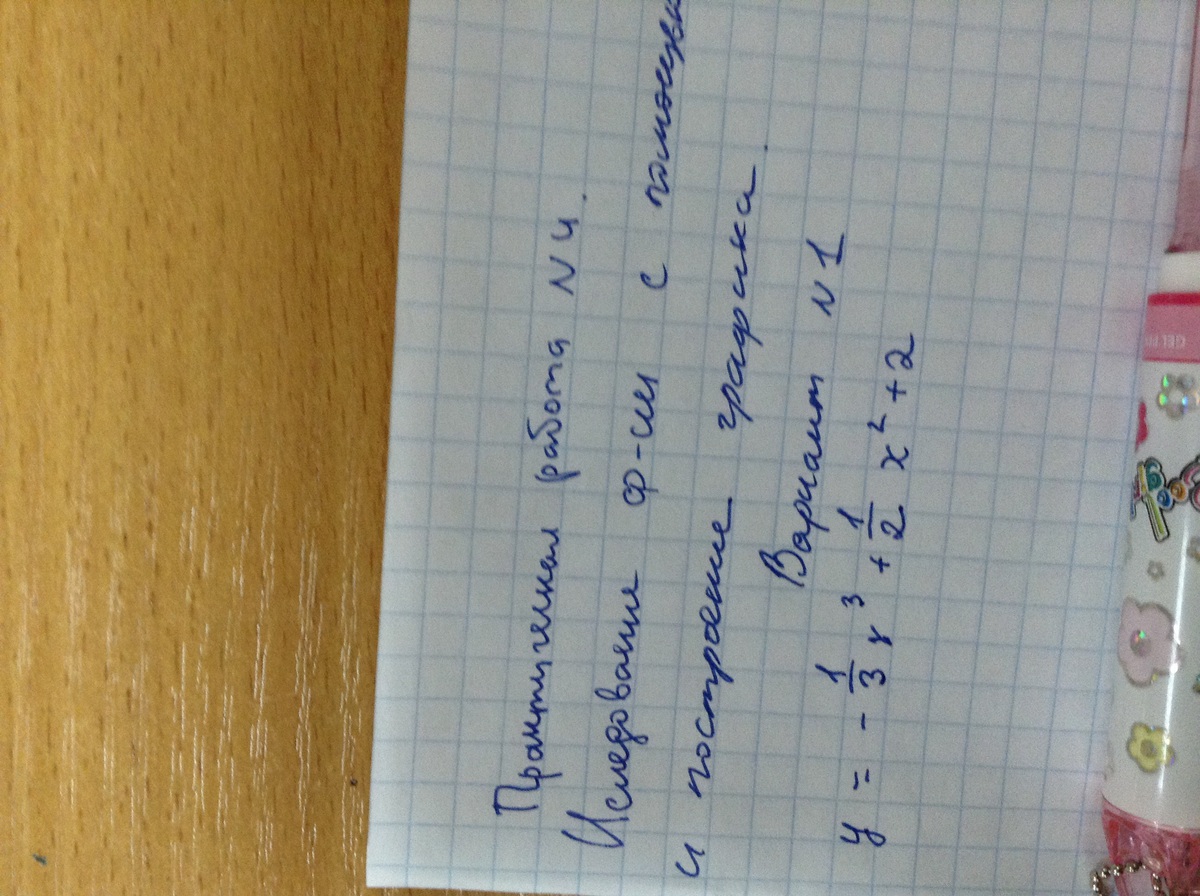 Практическая работа N 4.
Исследование ф-ии с помощью
и построение графика.
Вариант N 1
y = - 1/3 x³ + 1/2 x² + 2
GEL